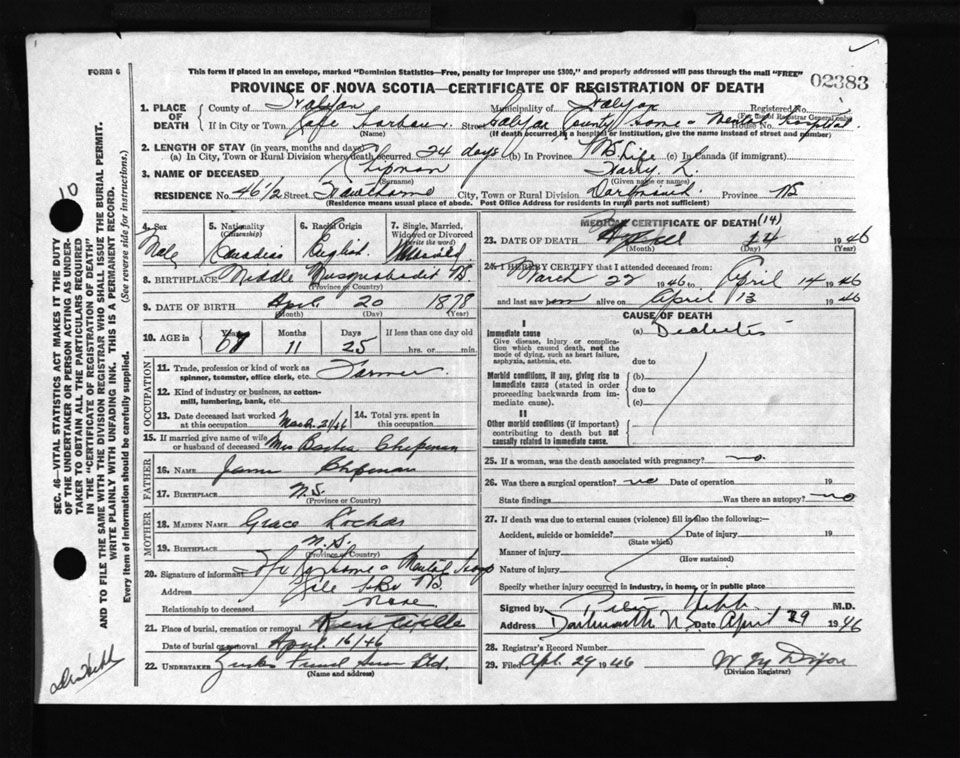 FORM 6
This form if placed in an envelope, marked "Dominion Statistics—Free, penalty for improper use $300," and properly addressed will pass through the mail "FREE"
02383
PROVINCE OF NOVA SCOTIA—CERTIFICATE OF REGISTRATION OF DEATH
1. PLACE OF DEATH County of Halifax Municipality of Halifax Registered No. (For use of Registrar General only)
If in City or Town Cole Harbour Street Halifax County Home & Mental Hospital House No.
(Name) (If death occurred in a hospital or institution, give name instead of street and number)
2. LENGTH OF STAY (in years, months and days)
(a) In City, Town or Rural Division where death occurred 24 days (b) In Province Life (c) In Canada (if immigrant)
3. NAME OF DECEASED Chipman Harry L.
(Surname) (Given name or names)
RESIDENCE No. 46 1/2 Street Hawthorne City, Town or Rural Division Dartmouth Province NS
(Residence means usual place of abode. Post Office Address for residents in rural parts not sufficient)
4. Sex 5. Nationality (Citizenship) 6. Racial Origin 7. Single, Married, Widowed or Divorced (Write the word)
Male Canadian English Married
8. BIRTHPLACE Middle Musquodobit NS
(Province or Country)
9. DATE OF BIRTH April 20 1878
(Month) (Day) (Year)
10. AGE in Years Months Days If less than one day old
67 11 25 hrs. or min.
OCCUPATION
11. Trade, profession or kind of work as spinner, teamster, office clerk, etc. Farmer
12. Kind of industry or business, as cotton-mill, lumbering, bank, etc.
13. Date deceased last worked at this occupation March 21/46 14. Total yrs. spent in this occupation
15. If married give name of wife or husband of deceased Mrs Chipman
FATHER
16. NAME Chipman
17. BIRTHPLACE N.S.
(Province or Country)
MOTHER
18. MAIDEN NAME Grace
19. BIRTHPLACE N.S.
(Province or Country)
20. Signature of informant Home & Mental Hosp
Address Cole Hbr NS.
Relationship to deceased None
21. Place of burial, cremation or removal Kentville
Date of burial or removal April 16/46
22. UNDERTAKER Ltd.
(Name and address)
MEDICAL CERTIFICATE OF DEATH (14)
23. DATE OF DEATH April 14 1946
(Month) (Day) (Year)
24. I HEREBY CERTIFY that I attended deceased from:
March 22 1946 to April 14 1946
and last saw him alive on April 13 1946
CAUSE OF DEATH
I
Immediate cause (a) Diabetes
Give disease, injury or complication which caused death, not the mode of dying, such as heart failure, asphyxia, asthenia, etc.
due to
Morbid conditions, if any, giving rise to immediate cause (stated in order proceeding backwards from immediate cause). (b)
due to
(c)
II
Other morbid conditions (if important) contributing to death but not causally related to immediate cause.
25. If a woman, was the death associated with pregnancy? no.
26. Was there a surgical operation? no Date of operation 19
State findings Was there an autopsy? no
27. If death was due to external causes (violence) fill in also the following:—
Accident, suicide or homicide? Date of injury 19
(State which)
Manner of injury
(How sustained)
Nature of injury
Specify whether injury occurred in industry, in home, or in public place
Signed by M.D.
Address Dartmouth N.S. Date April 29 1946
28. Registrar's Record Number
29. Filed Apl. 29 1946 Dixon
(Division Registrar)
SEC. 46—VITAL STATISTICS ACT MAKES IT THE DUTY
OF THE UNDERTAKER OR PERSON ACTING AS UNDER-
TAKER TO OBTAIN ALL THE PARTICULARS REQUIRED
IN THE "CERTIFICATE OF REGISTRATION OF DEATH"
AND TO FILE THE SAME WITH THE DIVISION REGISTRAR WHO SHALL ISSUE THE BURIAL PERMIT.
WRITE PLAINLY WITH UNFADING INK. THIS IS A PERMANENT RECORD.
Every item of information should be carefully supplied. (See reverse side for instructions.)
10